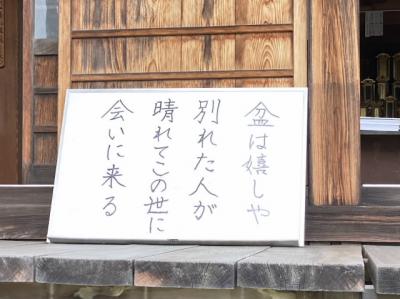 盆は嬉しや
別れた人が
晴れてこの世に
会いに来る